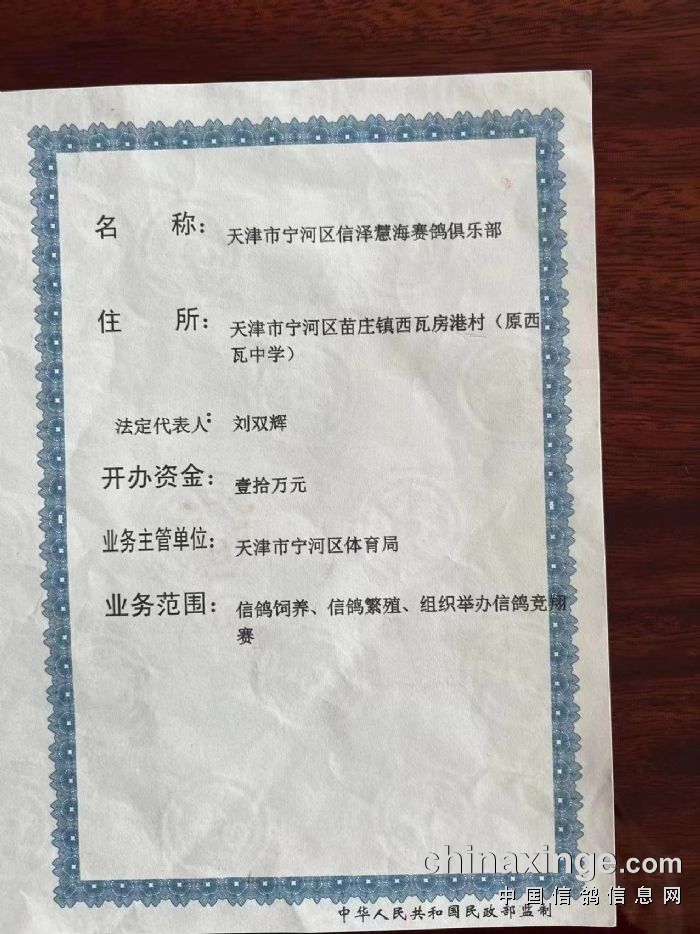 名 称：天津市宁河区信泽慧海赛鸽俱乐部
住 所：天津市宁河区苗庄镇西瓦房港村（原西
瓦中学）
法定代表人：刘双辉
开办资金：壹拾万元
业务主管单位：天津市宁河区体育局
业务范围：信鸽饲养、信鸽繁殖、组织举办信鸽竞翔
赛
chinaxinge.com
中国信鸽信息网
中华人民共和国民政部监制